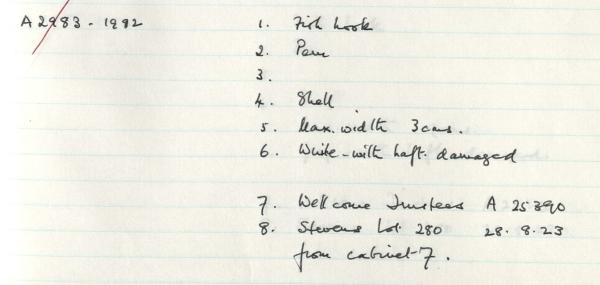 A 2983 - 1992 1. Fish hook
2. Peru
3.
4. Shell
5. Max. width 3cms.
6. White - with haft. damaged
7. Wellcome Trustees A 25390
8. Stevens Lot 280 28. 8. 23
from cabinet 7.